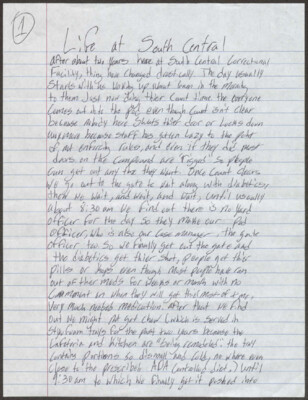 1
Life at South Central
after about two years here at South Central Correctional
Facility, things have changed drastically. The day usually
Starts with us waking up about 6am in the morning
to them Just now doing their Count time. The everyone
comes out into the pod even though Count isn't Clear
because nobody here Shuts their door or Locks down
anymore because staff has gotten lazy to the point
of not enforcing rules, and even if they did most
doors on the Compound are "rigged" so people
can get out any time they want. Once Count Clears
we go out to the gate to eat along with diabetics.
there we wait, and wait, and wait, until usually
about 8:30 am we find out there is no yard
officer for the day so they make our pod
officer, who is also our Case manager. The gate
officer too. So we finally get out the gate and
the diabetics get their shot, people get their
pills or hope even though most people have ran
out of their meds for weeks or month with no
Comment on when they will get this most of
very much needed medication. after that we find
out we might not get chow which is served in
Styrofoam trays for the past two years because the
Cafeteria and kitchen are "being remodeled". the tray
Contains portions so dismal and cold, no where even
Close to the prescribed ADA Controlled diet,) Until
9:30 am to which we finally get it pushed into